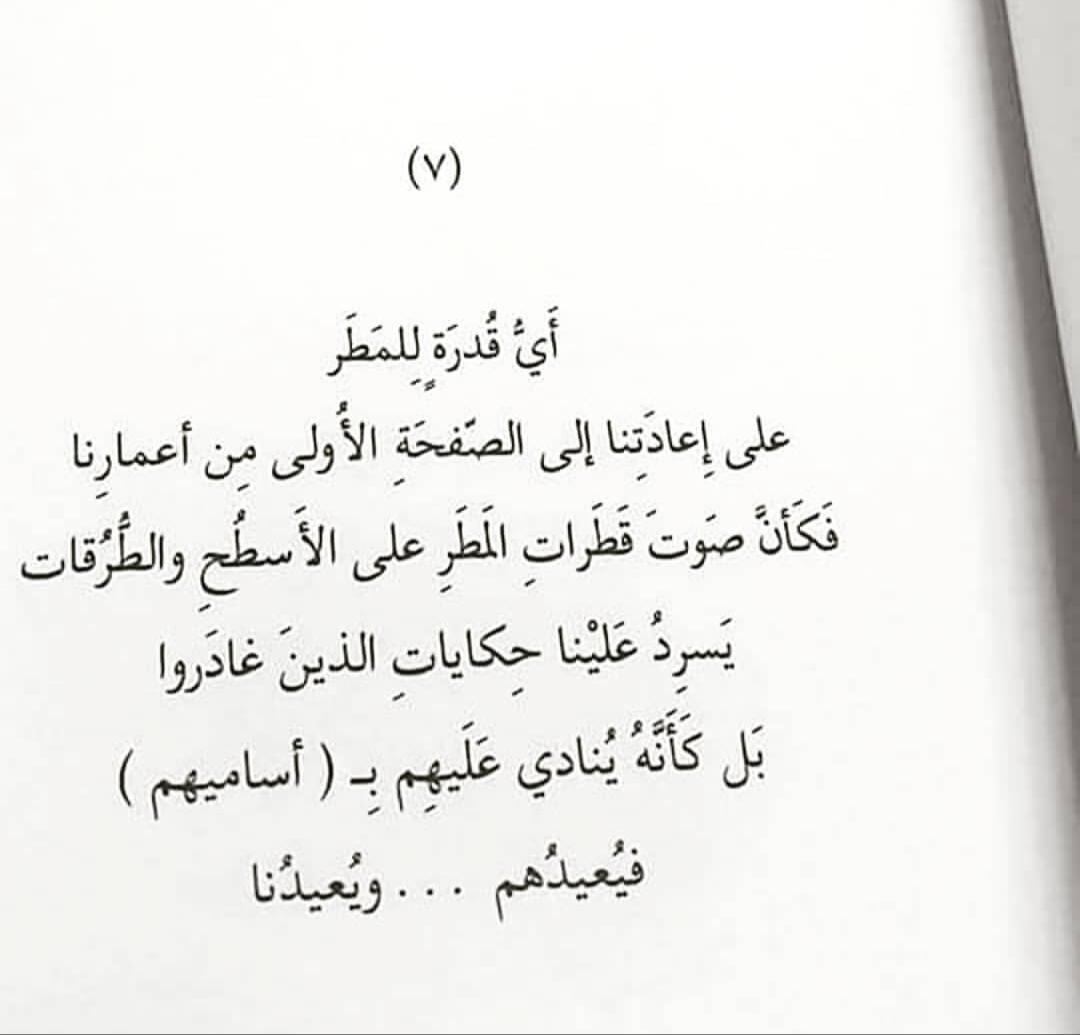 (٧)
أَيُّ قُدرَةٍ لِلمَطَر
على إِعادَتِنا إلى الصّفحَةِ الأُولى مِن أعمارِنا
فَكَأنَّ صَوتَ قَطَراتِ المَطَرِ على الأَسطُحِ والطُّرُقات
يَسرِدُ عَلَيْنا حِكاياتِ الذينَ غادَروا
بَل كَأَنَّهُ يُنادي عَلَيهِم بِـ ( أساميهم )
فيُعيدُهم ... ويُعيدُنا